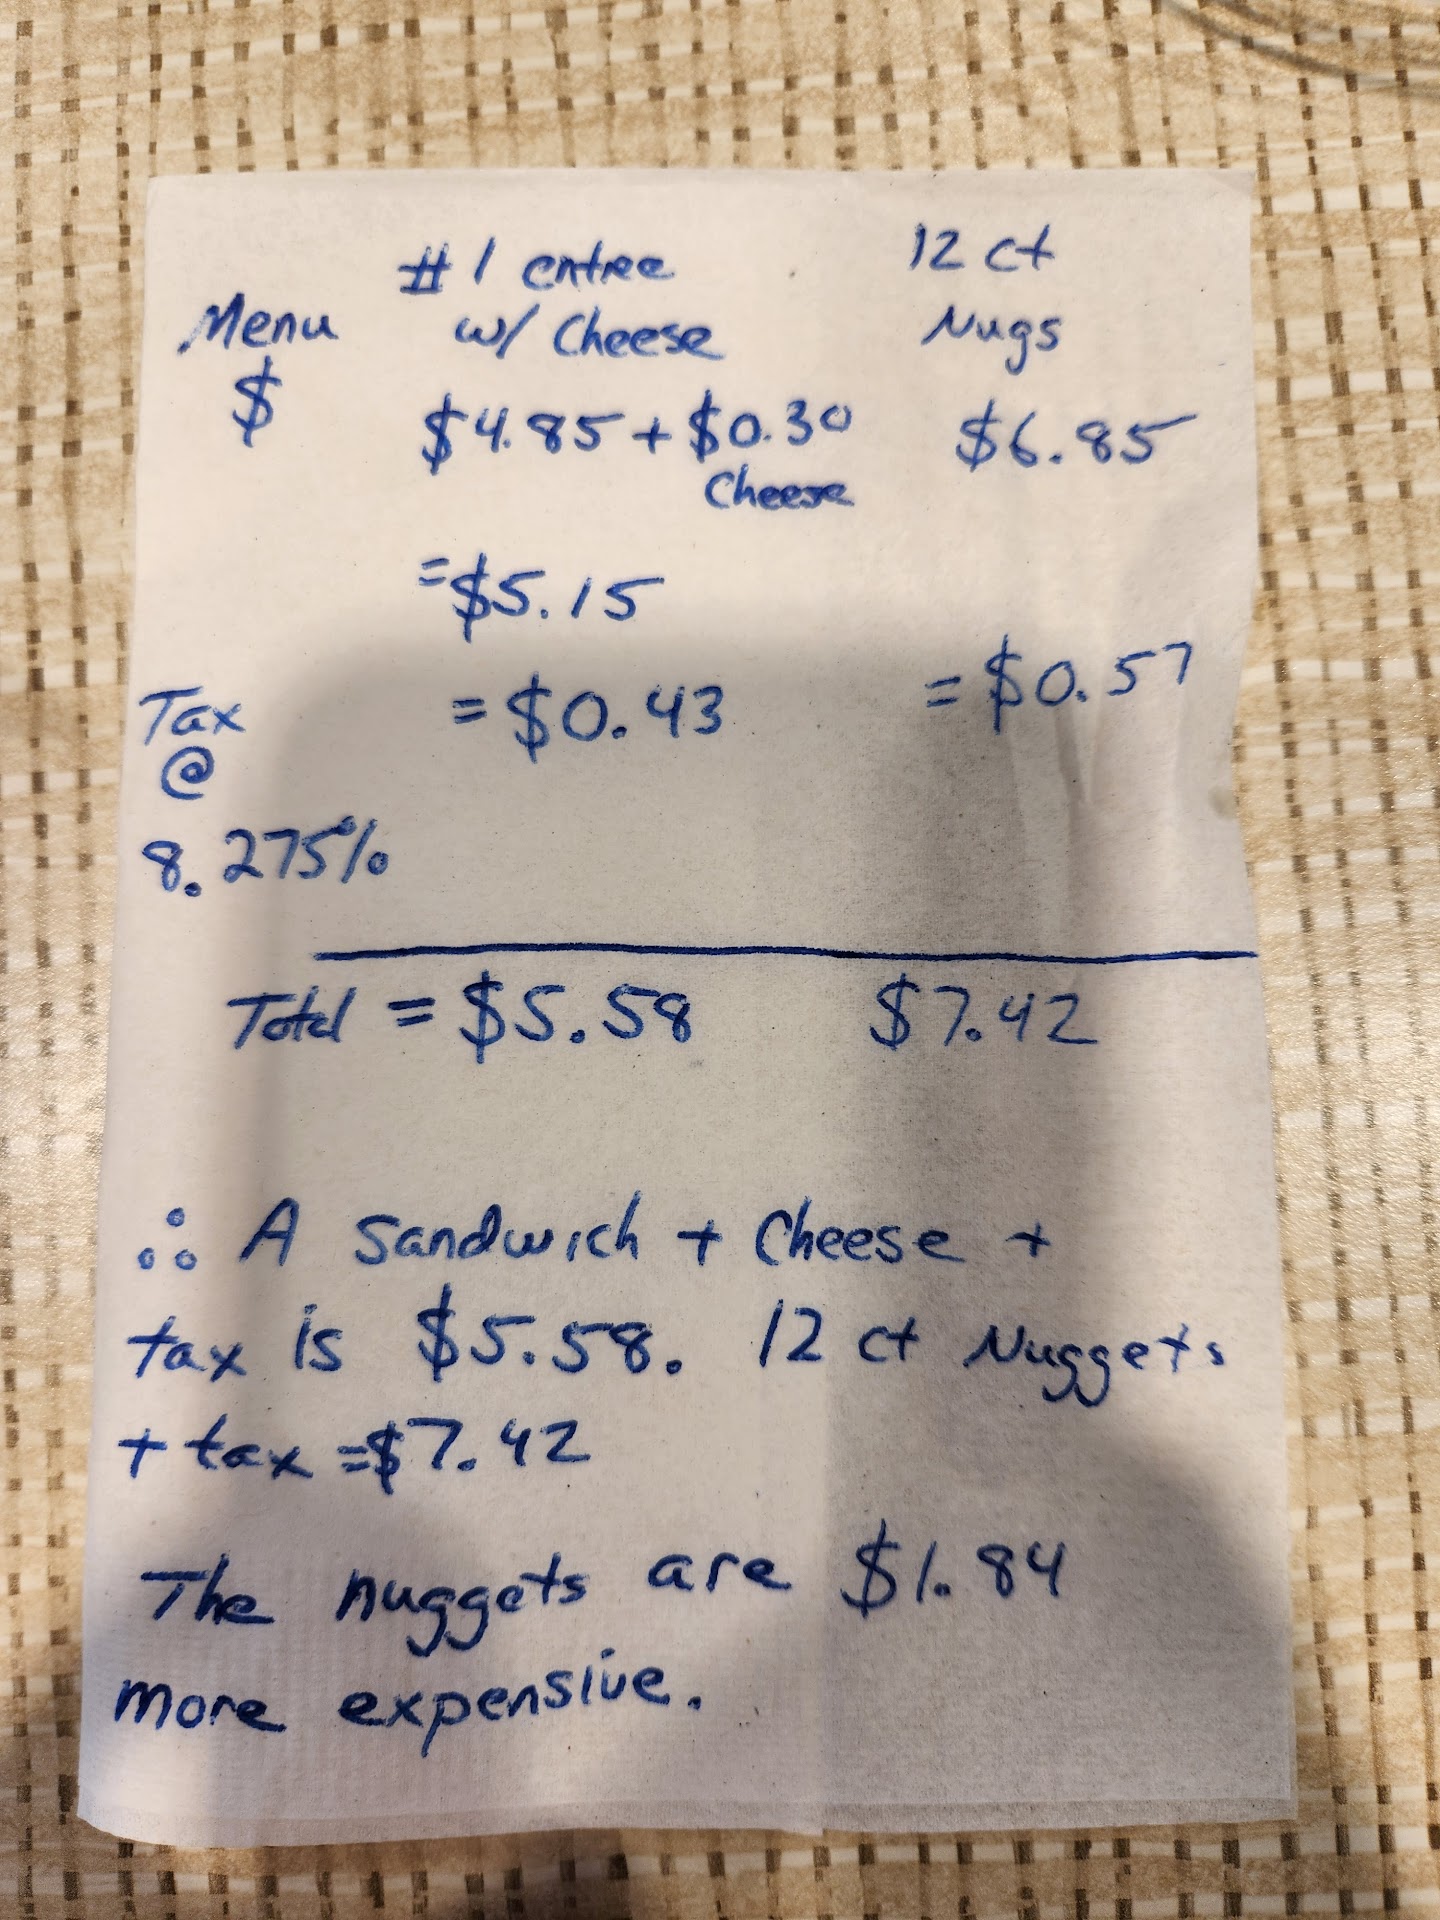 #1 entree 12 ct
Menu w/ Cheese Nugs
$ $4.85 + $0.30 $6.85
Cheese
= $5.15
Tax = $0.43 = $0.57
@
8.275%
Total = $5.58 $7.42
∴ A Sandwich + Cheese +
tax is $5.58. 12 ct Nuggets
+ tax = $7.42
The nuggets are $1.84
more expensive.